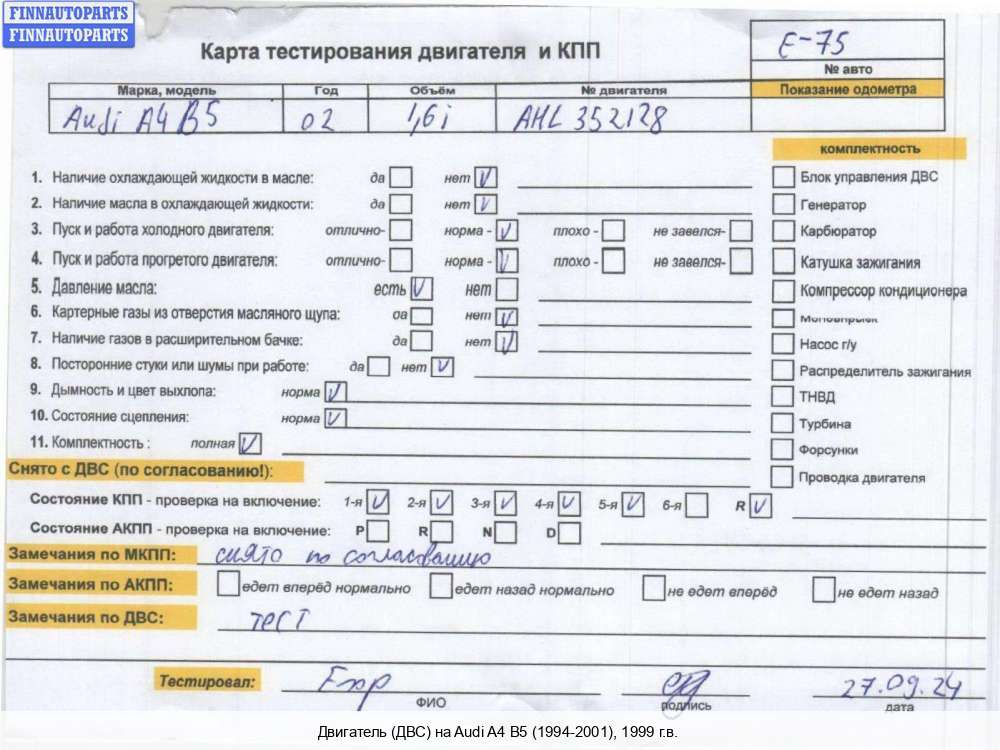 FINNAUTOPARTS
FINNAUTOPARTS
Карта тестирования двигателя и КПП
E-75
№ авто
Марка, модель Год Объём № двигателя Показание одометра
Audi A4 B5 02 1,6i AHL 352128
комплектность
1. Наличие охлаждающей жидкости в масле: да нет V
Блок управления ДВС
2. Наличие масла в охлаждающей жидкости: да нет V
Генератор
3. Пуск и работа холодного двигателя: отлично- норма - V плохо - не завелся-
Карбюратор
4. Пуск и работа прогретого двигателя: отлично- норма - V плохо - не завелся-
Катушка зажигания
5. Давление масла: есть V нет
Компрессор кондиционера
6. Картерные газы из отверстия масляного щупа: оа нет V
Моновпрыск
7. Наличие газов в расширительном бачке: да нет V
Насос г/у
8. Посторонние стуки или шумы при работе: да нет V
Распределитель зажигания
9. Дымность и цвет выхлопа: норма V
ТНВД
10. Состояние сцепления: норма V
Турбина
11. Комплектность : полная V
Форсунки
Снято с ДВС (по согласованию!):
Проводка двигателя
Состояние КПП - проверка на включение: 1-я V 2-я V 3-я V 4-я V 5-я V 6-я R V
Состояние АКПП - проверка на включение: P R N D
Замечания по МКПП: снято по согласованию
Замечания по АКПП: едет вперёд нормально едет назад нормально не едет вперёд не едет назад
Замечания по ДВС: тест
Тестировал: Егор 27.09.24
ФИО подпись дата
Двигатель (ДВС) на Audi A4 B5 (1994-2001), 1999 г.в.